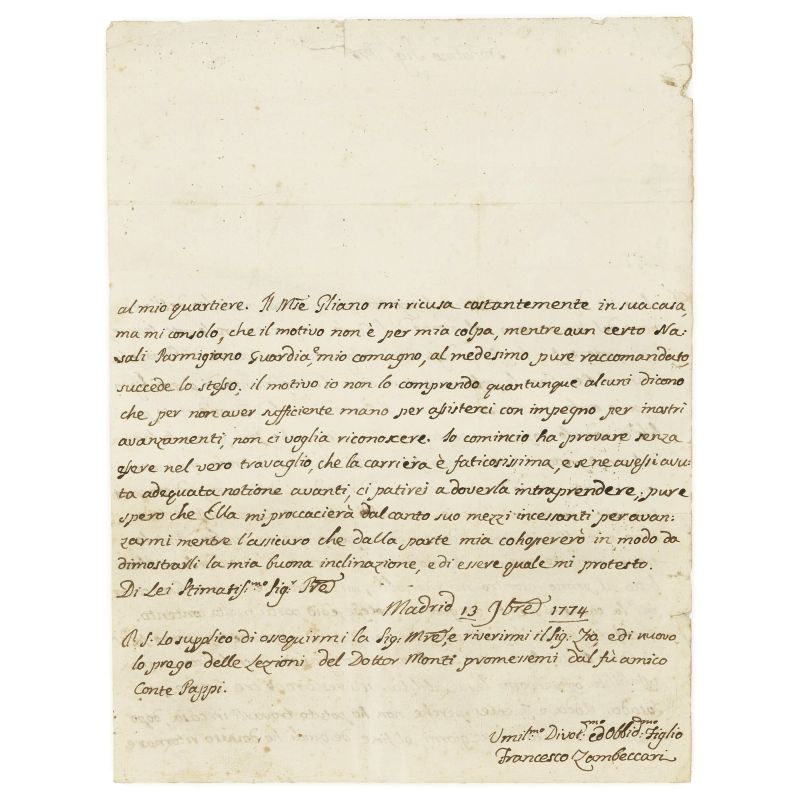 al mio quartiere. Il Mſe Gliano mi ricusa costantemente in sua casa,
ma mi consolo, che il motivo non è per mia colpa, mentre a un certo Na:
sali Parmigiano Guardia, e mio comagno, al medesimo pure raccomandato,
succede lo steſso; il motivo io non lo comprendo quantunque alcuni dicono
che per non aver sufficiente mano per aſsisterci con impegno per i nostri
avanzamenti, non ci voglia riconoscere. Io comincio ha provare senza
eſsere nel vero travaglio, che la carriera è faticosissima, e se ne aveſsi avu:
ta adequata notione avanti, ci patirei a doverla intraprendere, pure
spero che Ella mi proccacierà dal canto suo mezzi inceſsanti per avan:
zarmi mentre l'assicuro che dalla parte mia cohopererò in modo da
dimostrarli la mia buona inclinazione, e di essere quale mi protesto.
Di Lei Stimatiſ:mo Sig:r Pre
Madrid 13 9bre 1774
P. S. Lo supplico di osseguirmi la Sig: Mre, e riverirmi il Sig: Zio, e di nuovo
lo prego delle Lezioni del Dottor Monti promessemi dal fù amico
Conte Pappi.
Umil:mo Divot:mo ed Obbid:mo Figlio
Francesco Zambeccari